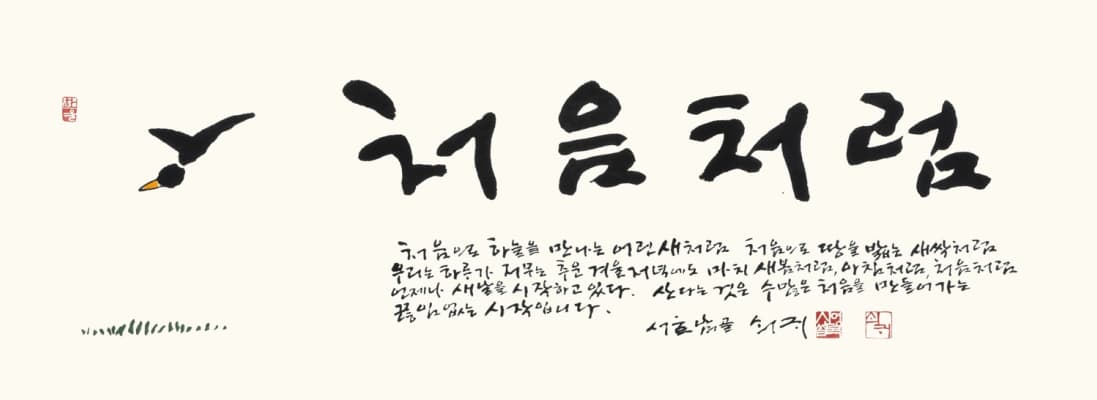 처음처럼
처음으로 하늘을 만나는 어린새처럼 처음으로 땅을 밟는 새싹처럼
우리는 하루가 저무는 추운 겨울저녁에도 마치 새봄처럼, 아침처럼, 처음처럼
언제나 새날을 시작하고 있다. 산다는 것은 수많은 처음을 만들어가는
끊임없는 시작입니다.
쇠귀